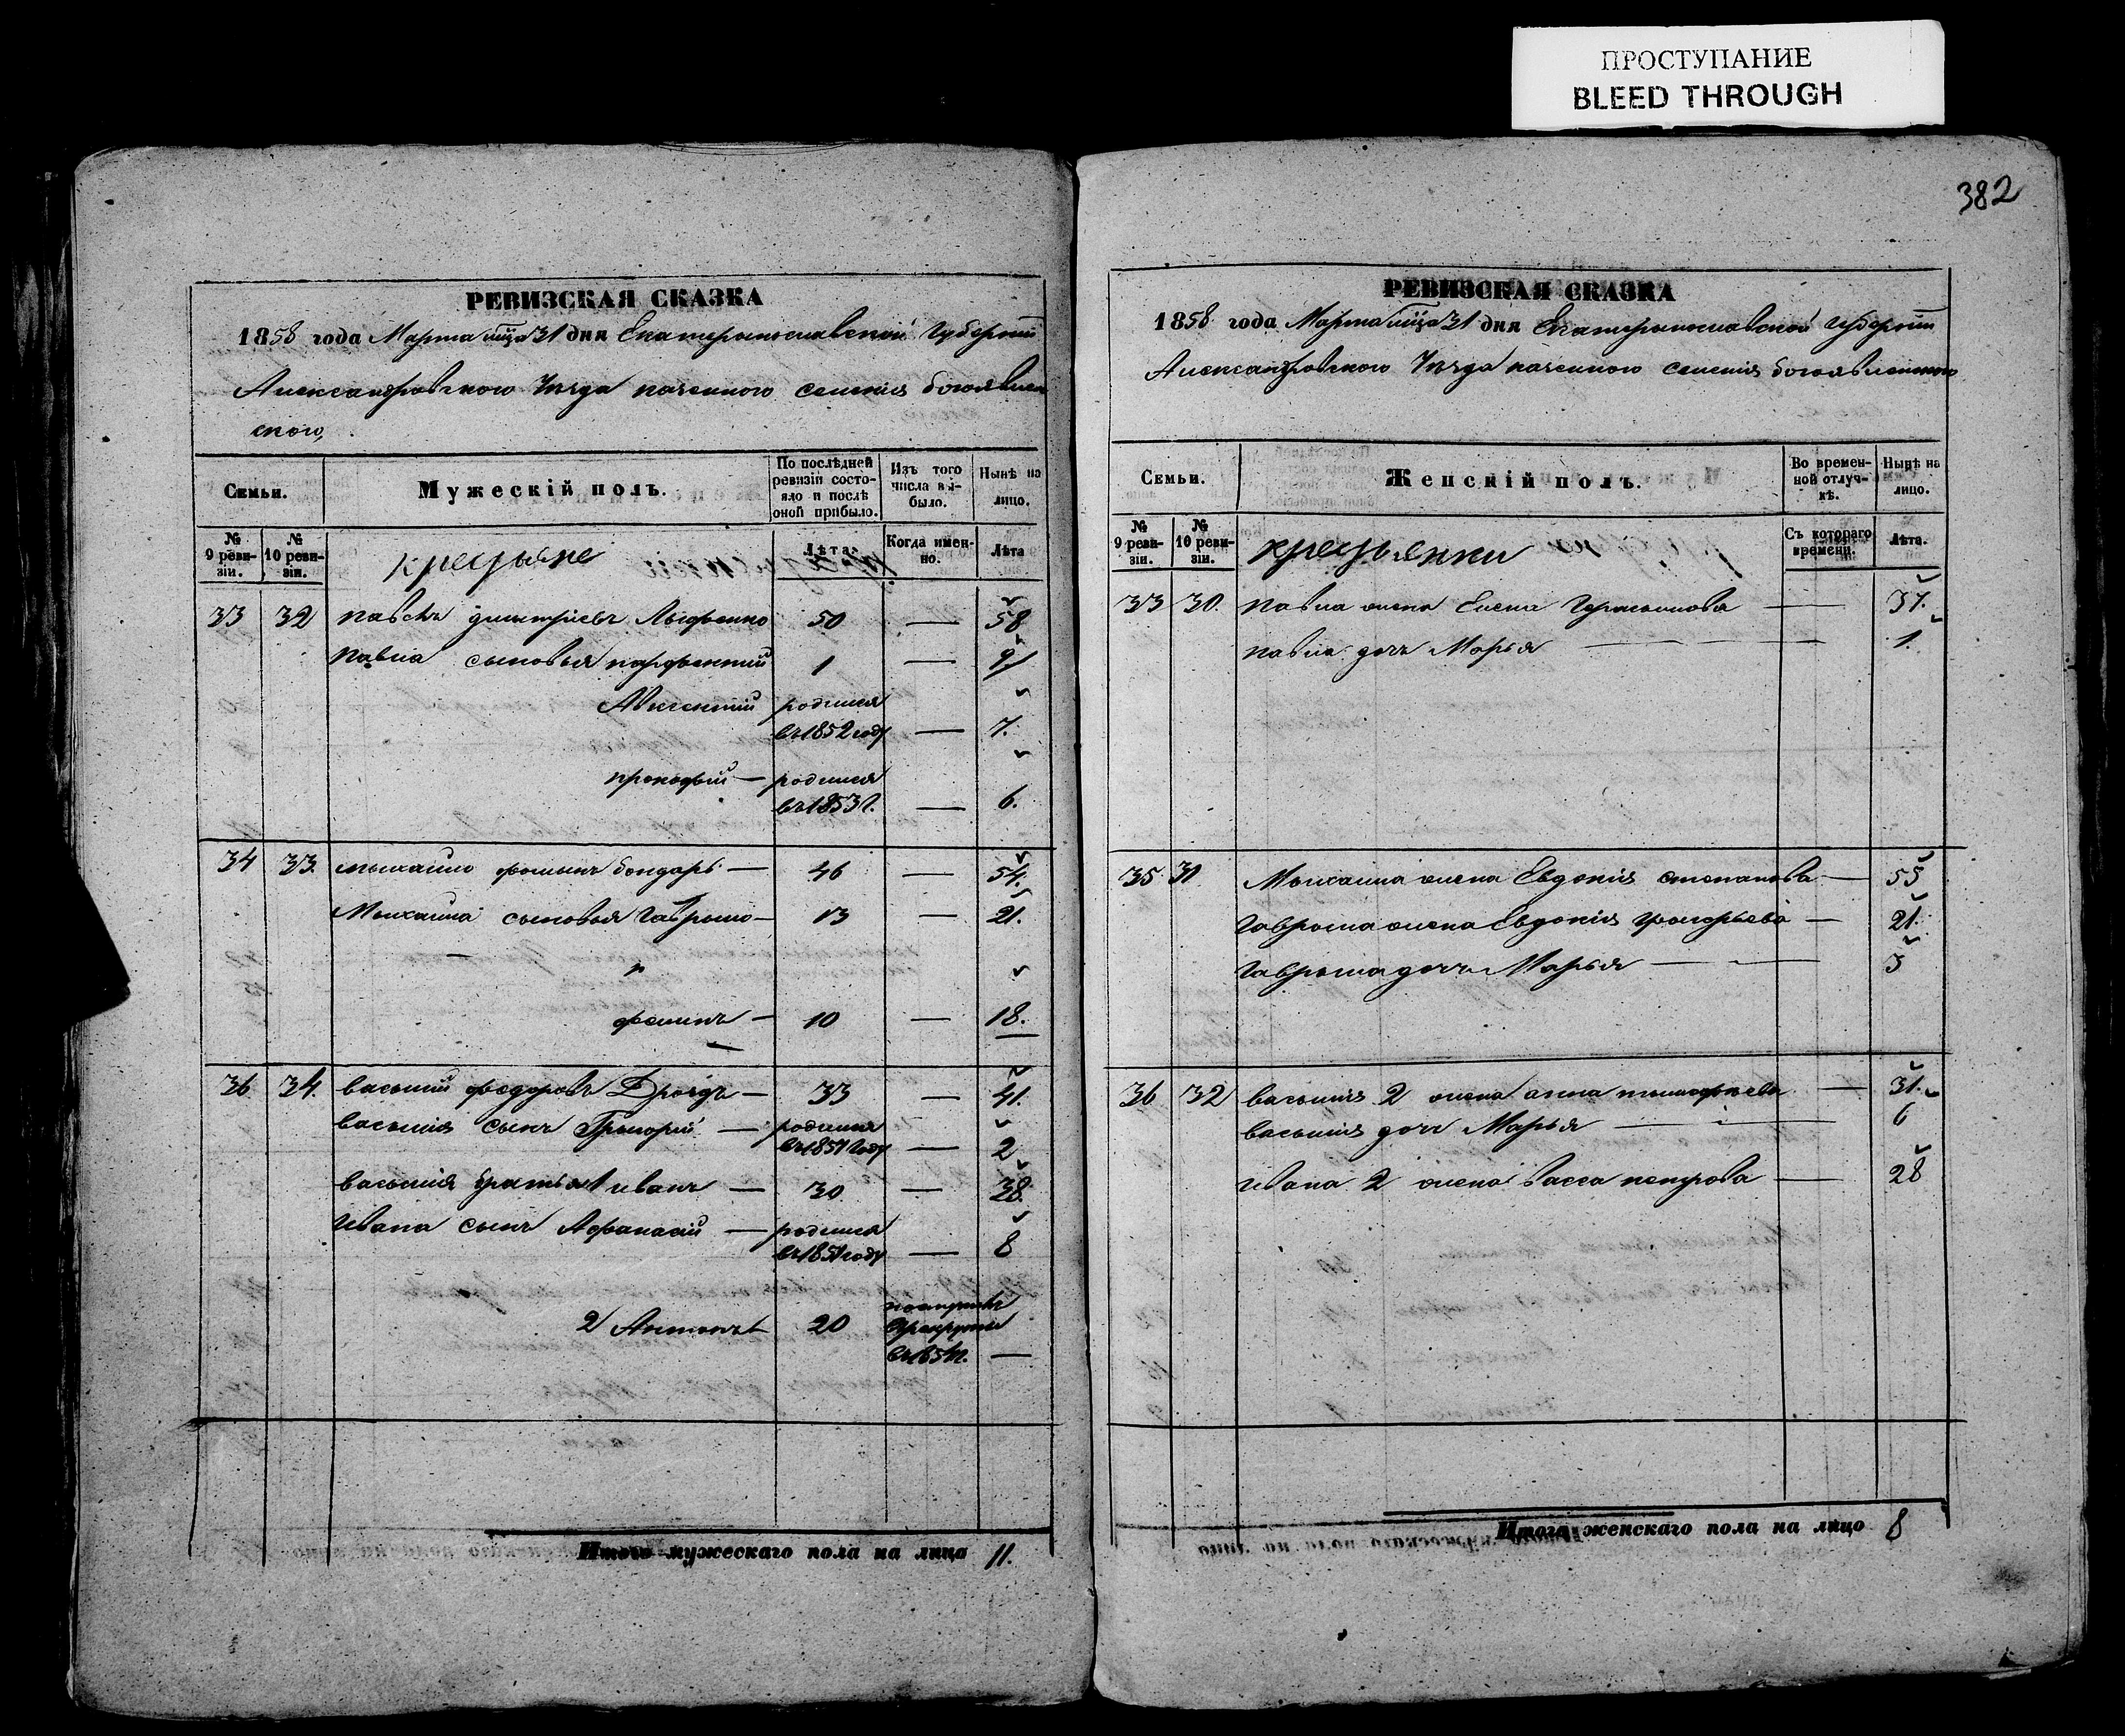 ПРОСТУПАНИЕ
BLEED THROUGH
РЕВИЗСКАЯ СКАЗКА
1858 года Марта м̃ца 31 дня Екатеринославской Губернии
Александровского Уезда казенного селения богоявлен
ского,
Семьи.
Мужескій полъ.
По послѣдней ревизіи состояло и послѣ оной прибыло.
Изъ того числа выбыло.
Нынѣ на лицо.
№ 9 ревизіи.
№ 10 ревизіи.
крестьяне
Лѣта.
Когда именно.
Лѣта
33 32 павелъ дмытріевъ 50 — 58
павла сыновья парфентий 1 — 9
родился
въ 1852 году — 7.
прокофий — родился
въ 1853 г. — 6.
34 33. мыхайло фомынъ бондарь — 46 — 54.
Мыхайла сыновья Гаврыло — 13 — 21.
фомынъ — 10 — 18.
36. 34. василий федоровъ Дроздъ — 33 — 41.
василия сынъ Грыгорий — родился
въ 1857 году — 2
василия братья 1 иванъ — 30 — 38.
ивана сынъ Афанасий — родился
въ 1851 году — 8
2 Антонъ 20 —
Итого мужескаго пола на лицо 11.
382
РЕВИЗСКАЯ СКАЗКА
1858 года Марта м̃ца 31 дня Екатеринославской губернии
Александровского Уезда казенного селения богоявленского
Семьи.
Женскій полъ.
Во временной отлучкѣ.
Нынѣ на лицо.
№ 9 ревизіи.
№ 10 ревизіи.
крестьянки
Съ котораго времени.
Лѣта.
33 30. павла жена Елена Герасымова — 37.
павла дочь Марья — 1.
35 31 Мыхайла жена Евдокия степанова — 55
гаврыла жена Евдокия григорьева — 21.
гаврыла дочь Марья — 3
36 32 василия 2 жена анна тымофеева — 31.
василия дочь Марья — 6
ивана 2 жена васса петрова — 28
Итого женскаго пола на лицо 8